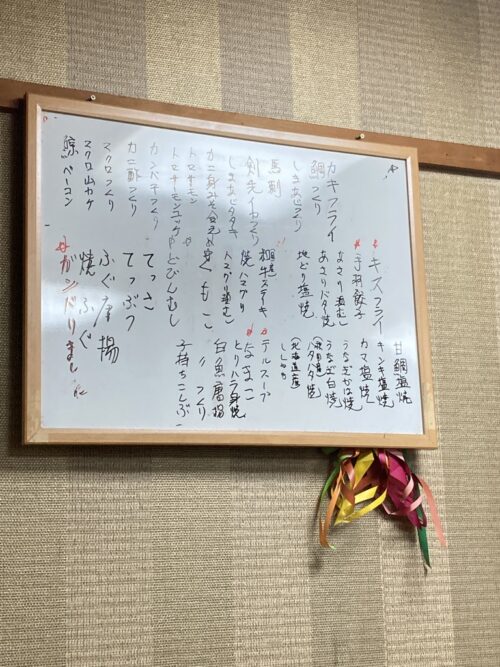 カキフライ
鯛つくり
しまあじつくり
馬刺
剣先イカつくり
しまあじタタキ
トマトキモン
トマトキモンユッケ
カンパチつくり
カニ酢つくり
マグロつくり
マグロ山カケ
鯨ベーコン
キスフライ
手羽餃子
あさり酒むし
あさりバター焼
地どり塩焼
牛ステーキ
焼ハマグリ
ハマグリ酒むし
どびんむし
てっさ
てっぷつ
ふぐ唐揚
焼ふぐ
甘鯛塩焼
キンキ塩焼
カマ塩焼
うなぎかば焼
うなぎ白焼
バタバタ焼
北海道産
ししゃも
テールスープ
なまこ
とりハラ身焼
白魚唐揚
〃つくり
子持ちこんぶ